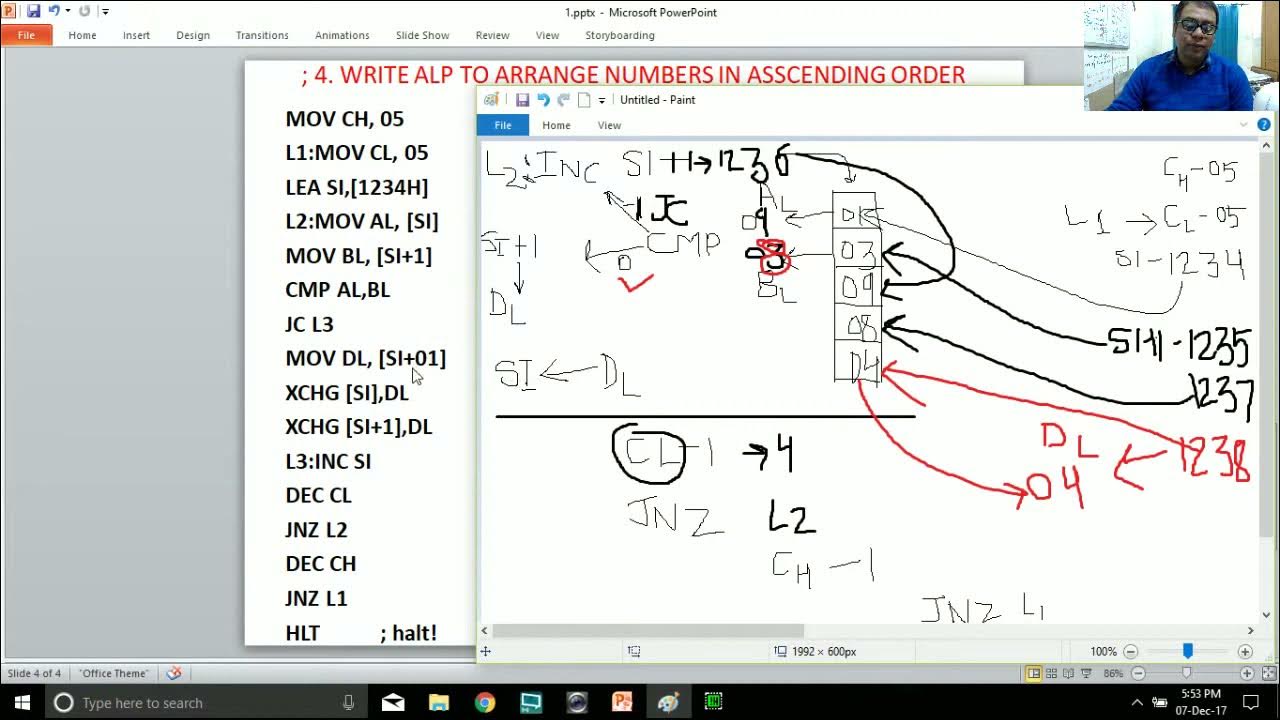 1.pptx - Microsoft PowerPoint
File Home Insert Design Transitions Animations Slide Show Review View Storyboarding
; 4. WRITE ALP TO ARRANGE NUMBERS IN ASSCENDING ORDER
MOV CH, 05
L1:MOV CL, 05
LEA SI,[1234H]
L2:MOV AL, [SI]
MOV BL, [SI+1]
CMP AL,BL
JC L3
MOV DL, [SI+01]
XCHG [SI],DL
XCHG [SI+1],DL
L3:INC SI
DEC CL
JNZ L2
DEC CH
JNZ L1
HLT ; halt!
Untitled - Paint
File Home View
L2: INC SI+1→1236
AL
09
JC
CMP
0
03
BL
SI+1
DL
SI ← DL
03
09
08
04
CH-05
L1 → CL-05
SI-1234
SI+1-1235
1237
DL ← 1238
04
CL-1 → 4
JNZ L2
CH-1
JNZ L1
1992 × 600px
100%
Slide 4 of 4 "Office Theme" 86%
Type here to search
5:53 PM
07-Dec-17